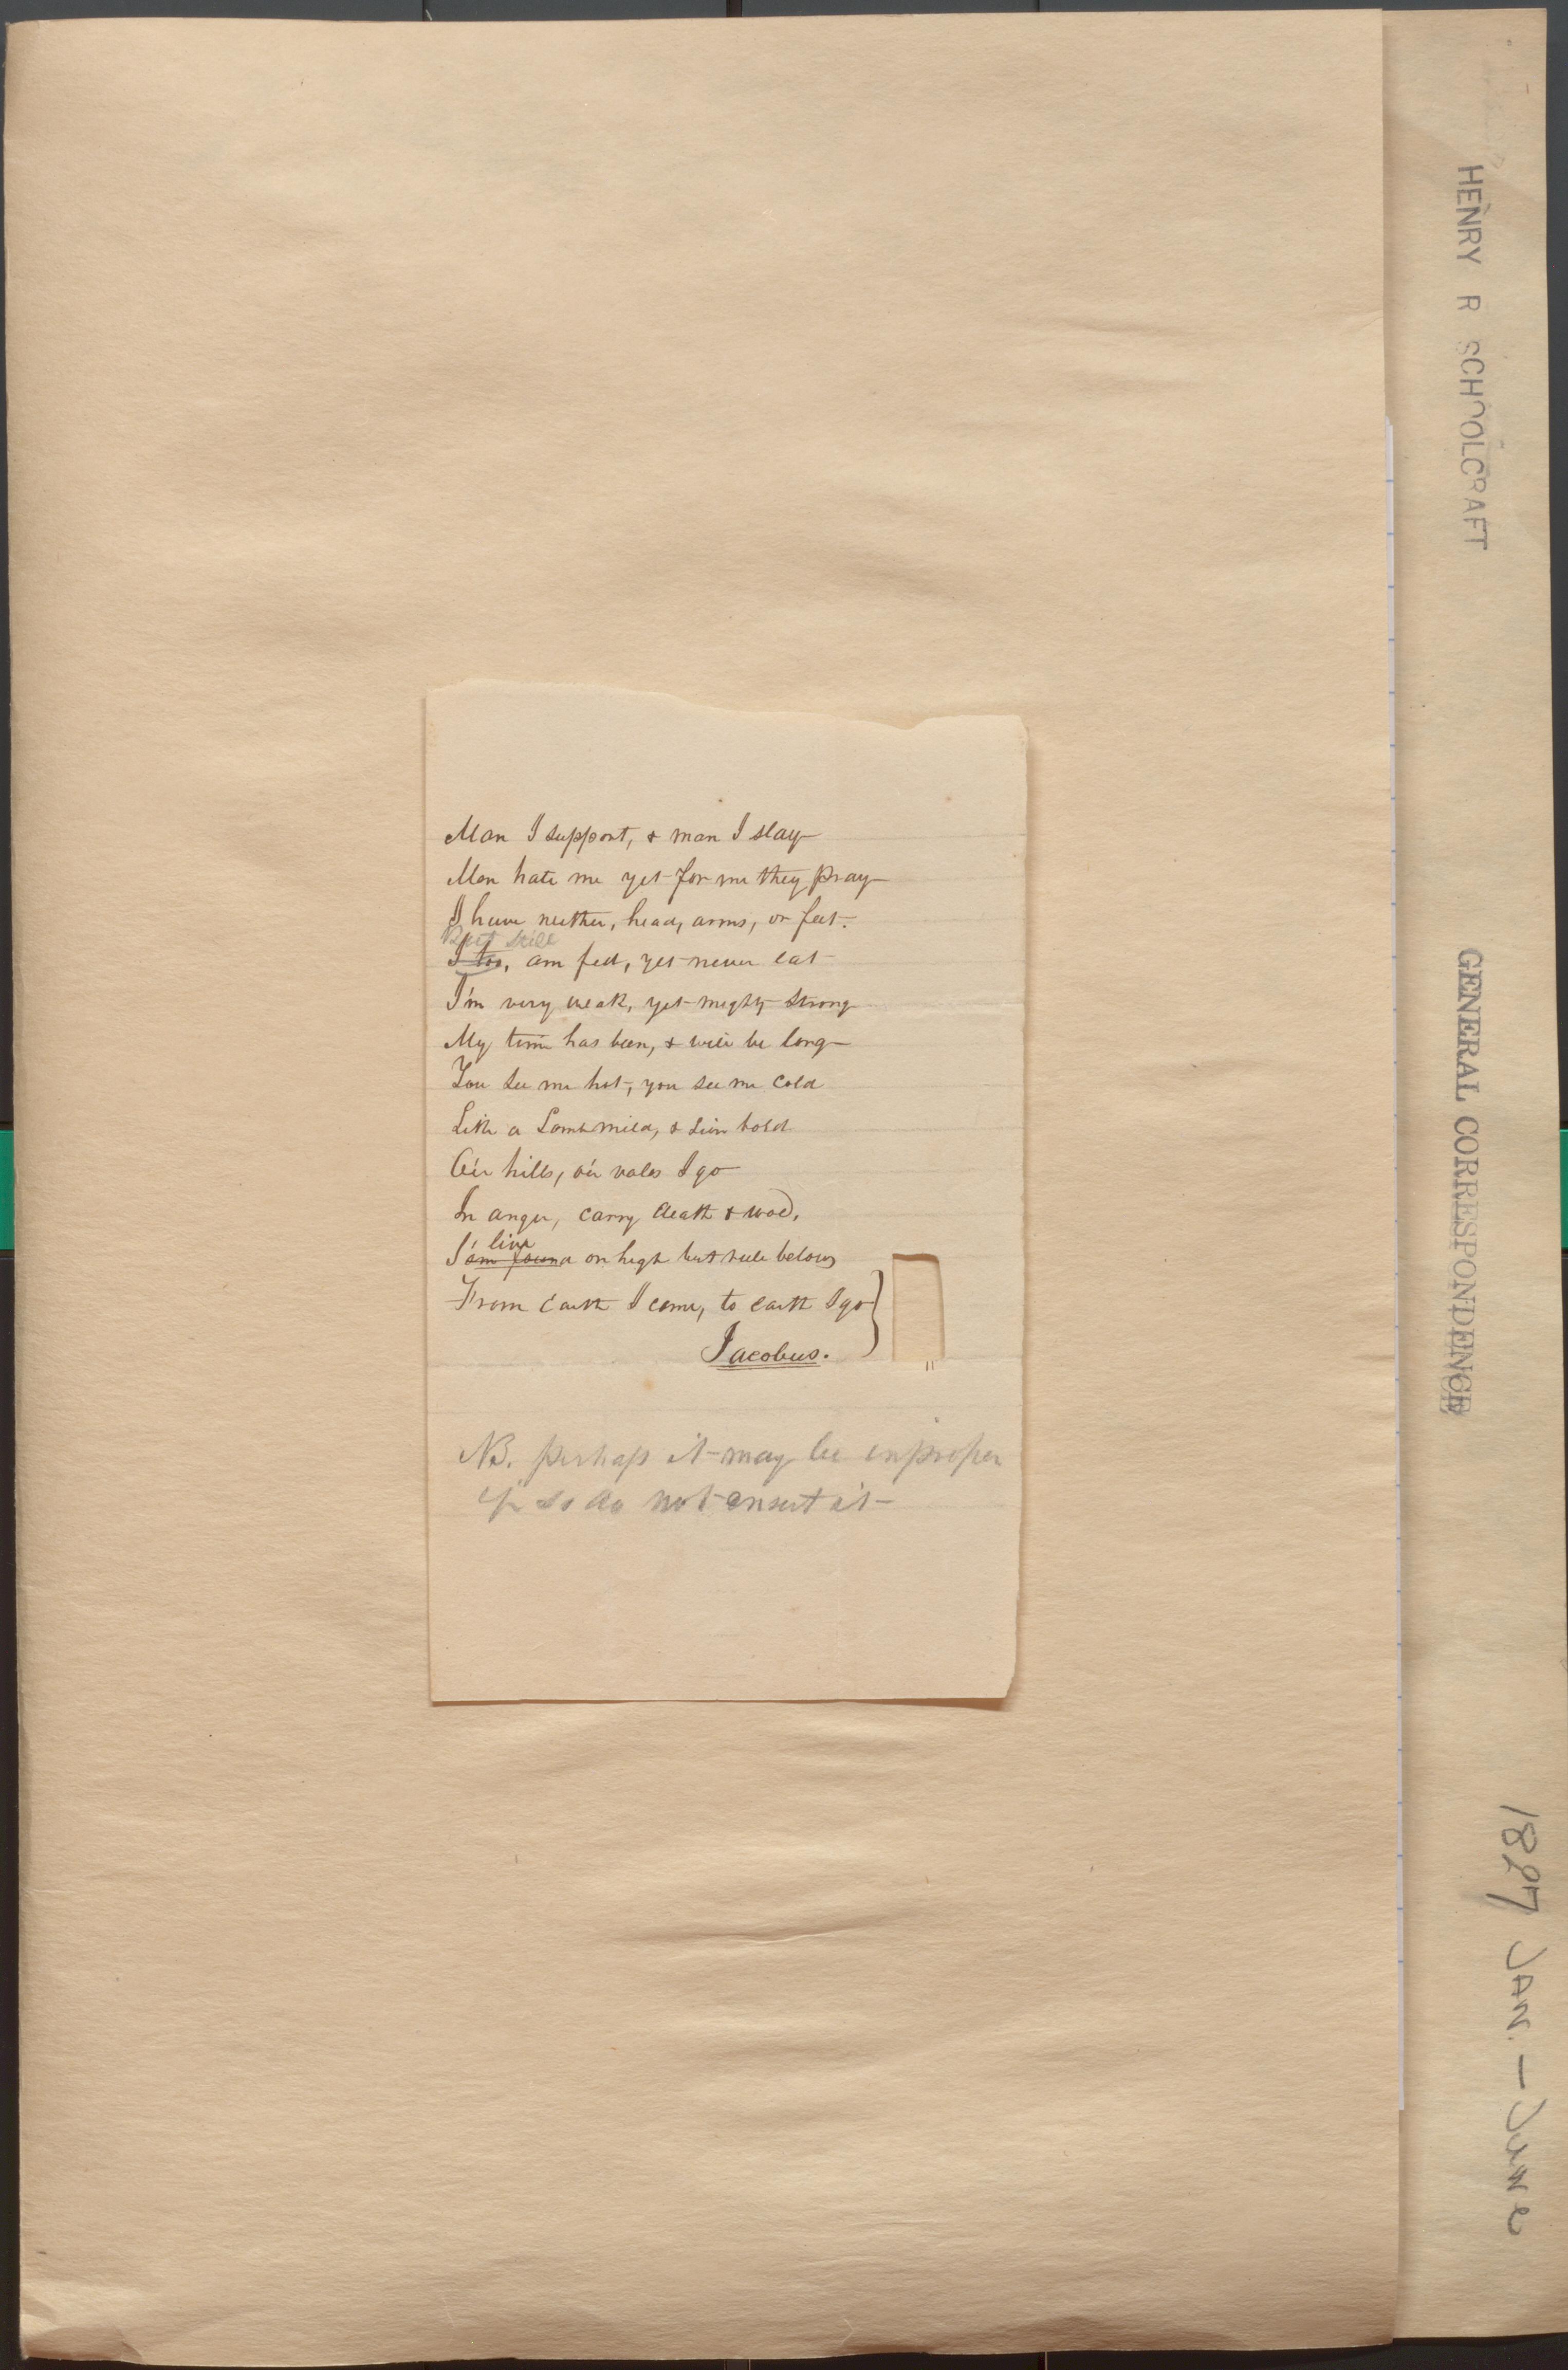 Man I support, & man I slay
Men hate me yet for me they pray
I have neither, head, arms, or feet.
But still
I too, am fed, yet never eat
I'm very weak, yet mighty strong
My time has been, & will be long
You see me hot, you see me cold
Like a Lamb mild, & Lion bold
O'er hills, o'er vales I go
In anger, carry death & woe,
live
I'm found on high but rule below
From Earth I come, to earth I go
Jacobus.
NB. perhaps it may be improper
if so do not insert it
HENRY R SCHOOLCRAFT
GENERAL CORRESPONDENCE
1827 JAN. - JUNE